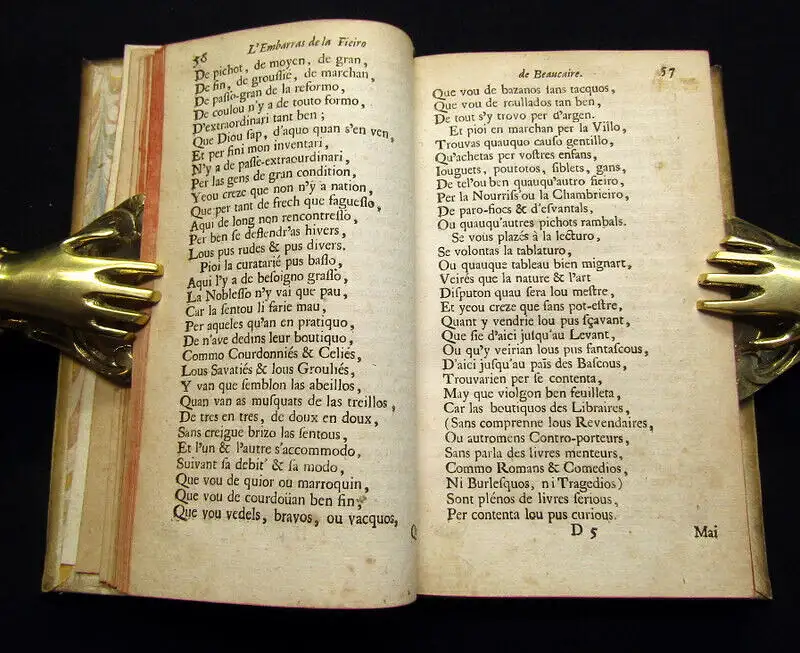 58
L'Embarras de la Fieiro
De pichot, de moyen, de gran,
De fin, de groussié, de marchan,
De passo-gran de la reformo,
De coulou n'y a de touto formo,
D'extraordinari tant ben ;
Que Diou sap, d'aquo quan s'en ven,
Et per fini mon inventari,
N'y a de passé-extraourdinari,
Per las gens de gran condition,
Yeou creze que non n'ÿ a nation,
Que per tant de frech que faguesso,
Aqui de long non rencontresso,
Per ben se deffendr'as hivers,
Lous pus rudes & pus divers.
Pioi la curatarié pus basso,
Aqui l'y a de besoigno grasso,
La Noblesso n'y vai que pau,
Car la sentou li farie mau,
Per aqueles qu'an en pratiquo,
De n'ave dedins leur boutiquo,
Commo Courdonniés & Celiés,
Lous Savatiés & lous Grouliés,
Y van que semblon las abeillos,
Quan van as musquats de las treillos,
De tres en tres, de doux en doux,
Sans creigue brizo las sentous,
Et l'un & l'autre s'accommodo,
Suivant sa debit' & sa modo,
Que vou de quior ou marroquin,
Que vou de courdoüan ben fin,
Que vou vedels, bravos, ou vacquos,
de Beaucaire.
57
Que vou de bazanos sans tacquos,
Que vou de roullados tan ben,
De tout s'y trovo per d'argen.
Et pioi en marchan per la Villo,
Trouvas quauquo causo gentillo,
Qu'achetas per vostres enfans,
Iouguets, poutotos, siblets, gans,
De tel'ou ben quauqu'autro fieiro,
Per la Nourriss'ou la Chambrieiro,
De paro-fiocs & d'esvantals,
Ou quauqu'autres pichots rambals.
Se vous plazés à la lecturo,
Se volontas la tablaturo,
Ou quauque tableau bien mignart,
Veirés que la nature & l'art
Disputon quau sera lou mestre,
Et yeou creze que sans pot-estre,
Quant y vendrie lou pus sçavant,
Que sie d'aici jusqu'au Levant,
Ou qu'y veirian lous pus fantascous,
D'aici jusqu'au païs des Bascous,
Trouvarien per se contenta,
May que violgon ben feuilleta,
Car las boutiquos des Libraires,
(Sans comprenne lous Revendaires,
Ou autromens Contro-porteurs,
Sans parla des livres menteurs,
Commo Romans & Comedios,
Ni Burlesquos, ni Tragedios)
Sont plénos de livres serious,
Per contenta lou pus curious.
D 5
Mai